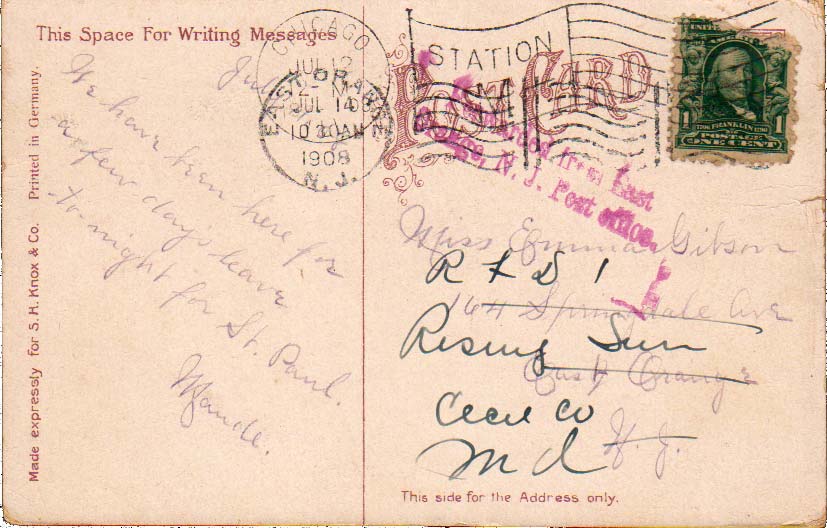 This Space For Writing Messages
July
We have been here for
a few days leave
to-night for St. Paul.
Maude.
Made expressly for S. H. Knox & Co. Printed in Germany.
CHICAGO
JUL 12
EAST ORANGE
JUL 14
10 30 AM
1908
N. J.
STATION
POST CARD
UNITED
1
1
FRANKLIN
POSTAGE
ONE CENT
from East
Orange, N. J. Post office.
Miss Emma Gibson
164 Springdale Ave
East Orange
N. J.
R F D 1
Rising Sun
Cecil Co
Md
This side for the Address only.